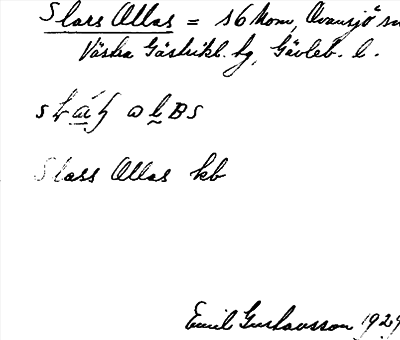 Slars Ollas = s 6 Kom, Ovansjö sn
Västra Gästrikl. hg, Gävleb. l.
Slass Ollas kb
Emil Gustavsson 1929